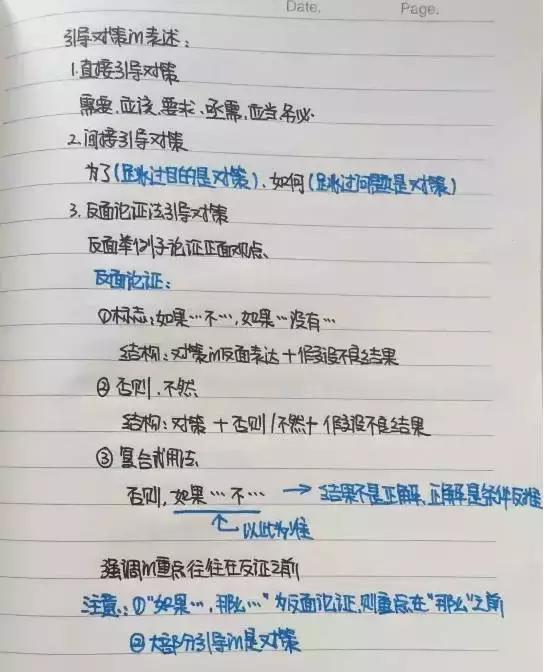 Date.
Page.
引导对策的表述:
1.直接引导对策
需要、应该、要求、亟需、应当、务必.
2.间接引导对策
为了(跳过目的是对策)、如何(跳过问题是对策)
3.反面论证法引导对策
反面举例子论证正面观点、
反面论证:
①标志:如果…不…,如果…没有…
结构:对策的反面表达+假设不良结果
②否则、不然
结构:对策+否则/不然+假设不良结果
③复合式用法
否则,如果…不… → 结果不是正解、正解是条件反推
以此为准
强调的重点往往在反证之前
注意:①"如果…,那么…"为反面论证,则重点在"那么"之前
②大部分引导的是对策